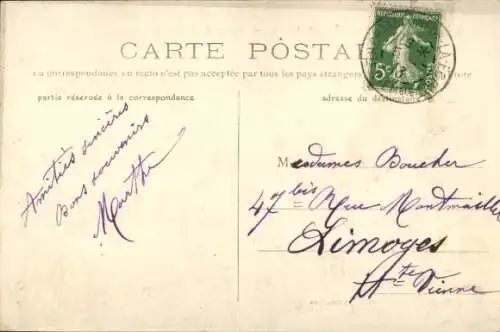 CARTE POSTALE
La correspondance au recto n'est pas acceptée par tous les pays étrangers
partie réservée à la correspondance
adresse du destinataire
REPUBLIQUE FRANÇAISE
5
Amitiés sincères
Bons souvenirs
Marthe
Mesdames Boucher
47 bis Rue Montmailler
Limoges
Hte Vienne